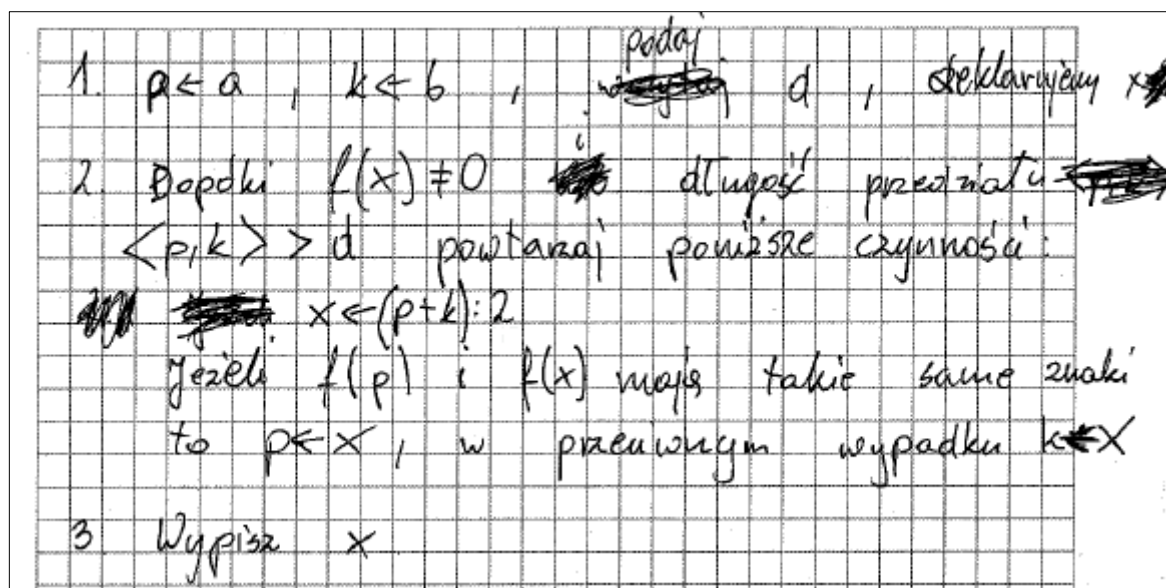 1. p ← a , k ← b , podaj d , deklarujemy x
2. Dopóki f(x) ≠ 0 i długość przedziału
<p,k> > d powtarzaj poniższe czynności:
x ← (p+k):2
Jeżeli f(p) i f(x) mają takie same znaki
to p ← x , w przeciwnym wypadku k ← x
3 Wypisz x